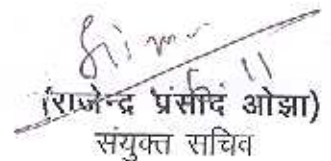 (राजेन्द्र प्रसाद ओझा)
संयुक्त सचिव